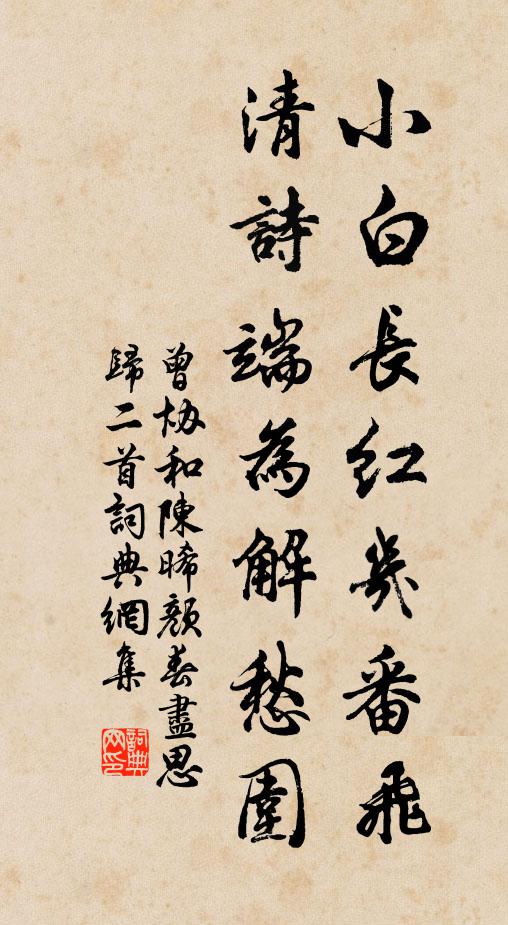 小白長紅幾番飛
清詩端為解愁圍
曾協和陳晞顏春盡思
歸二首詞典網集
詞典
网印